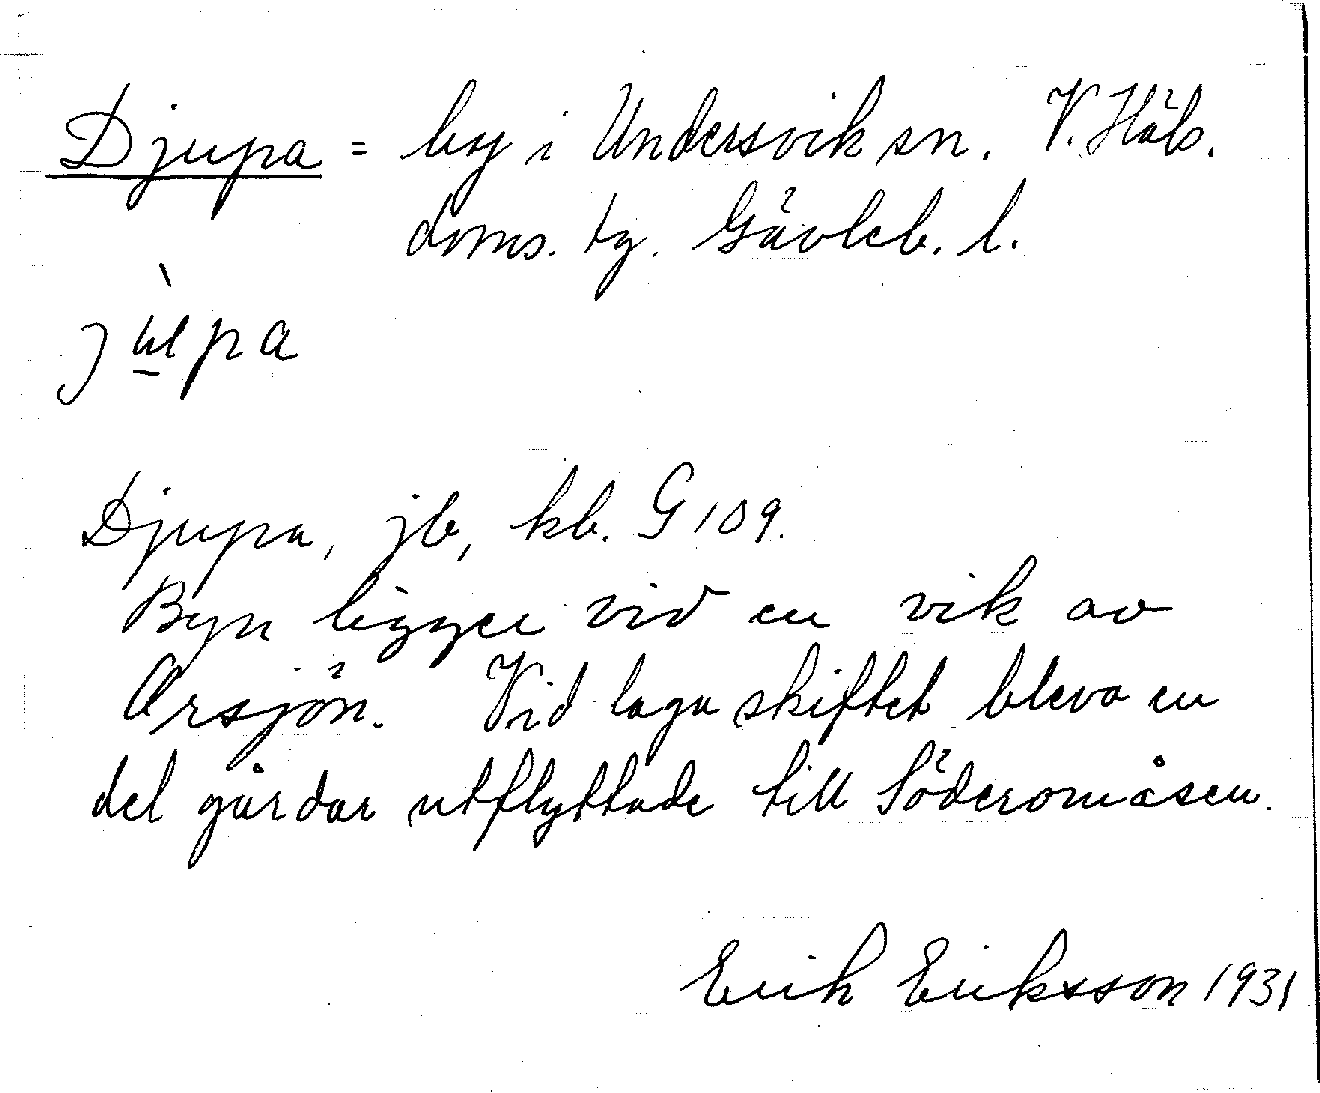 Djupa = by i Undersvik sn. V. Häls.
doms. tg. Gävleb. l.
jùpa
Djupa, jb, kb. G 109.
Byn ligger vid en vik av
Orsjön. Vid laga skiftet bleva en
del gårdar utflyttade till Söderomåsen.
Erik Eriksson 1931